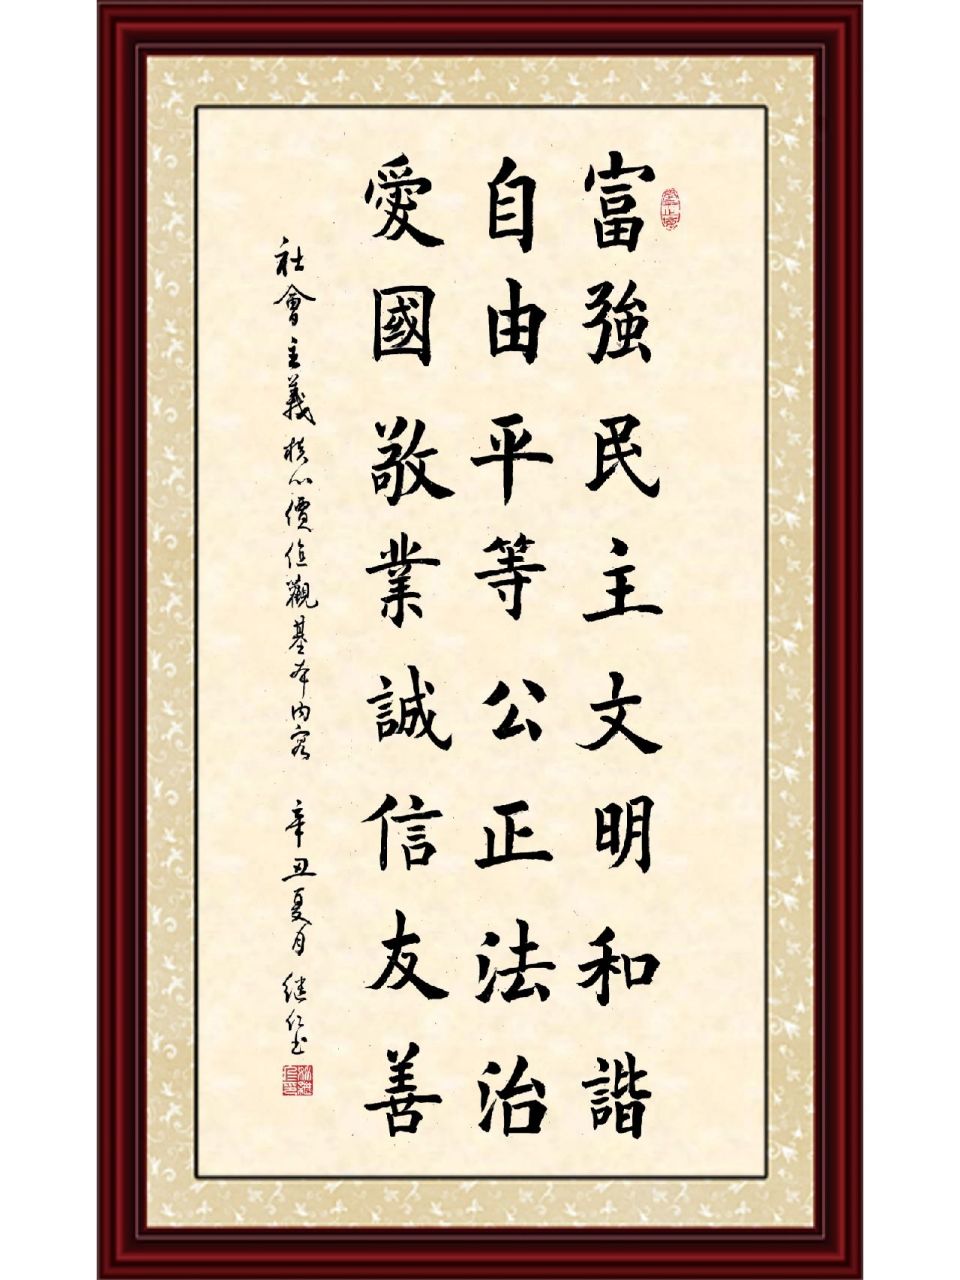 富強民主文明和諧
自由平等公正法治
愛國敬業誠信友善
社會主義核心價值觀基本內容 辛丑夏月 继仁书